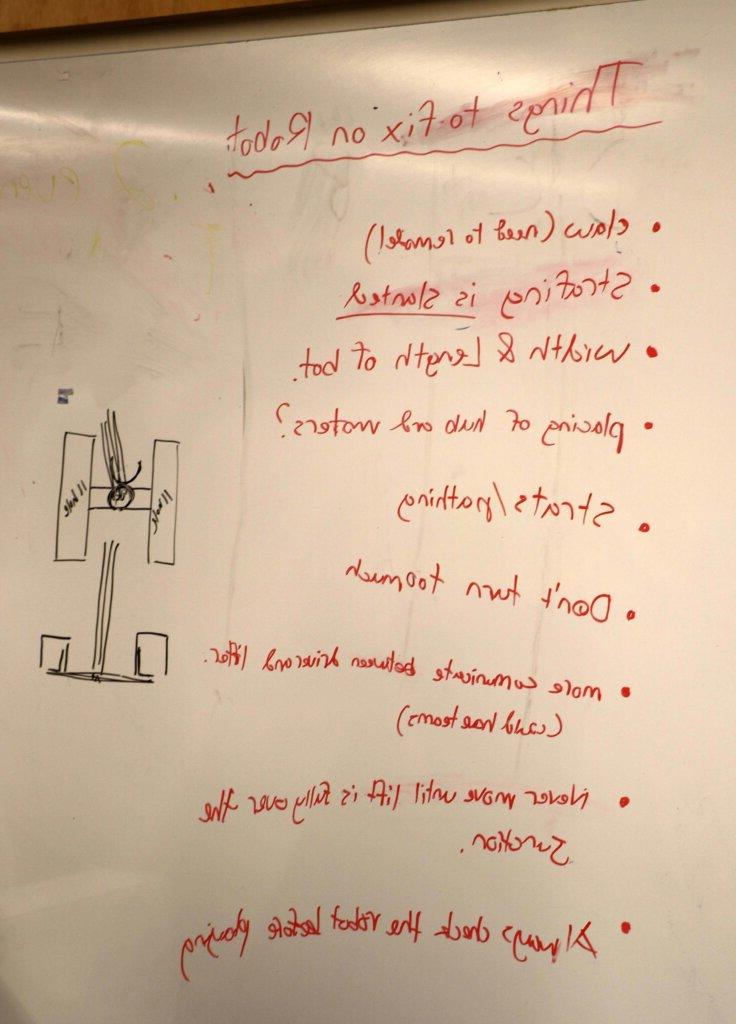 Things to Fix on Robot:
• claw (need to remodel)
• Strafing is slanted
• width & Length of bot.
• placing of hub and motors?
• Strats/pathing
• Don't turn too much
• more communicate between driver and lifter.
(could have teams)
• Never move until lift is fully over the
Junction.
• Always check the robot before placing